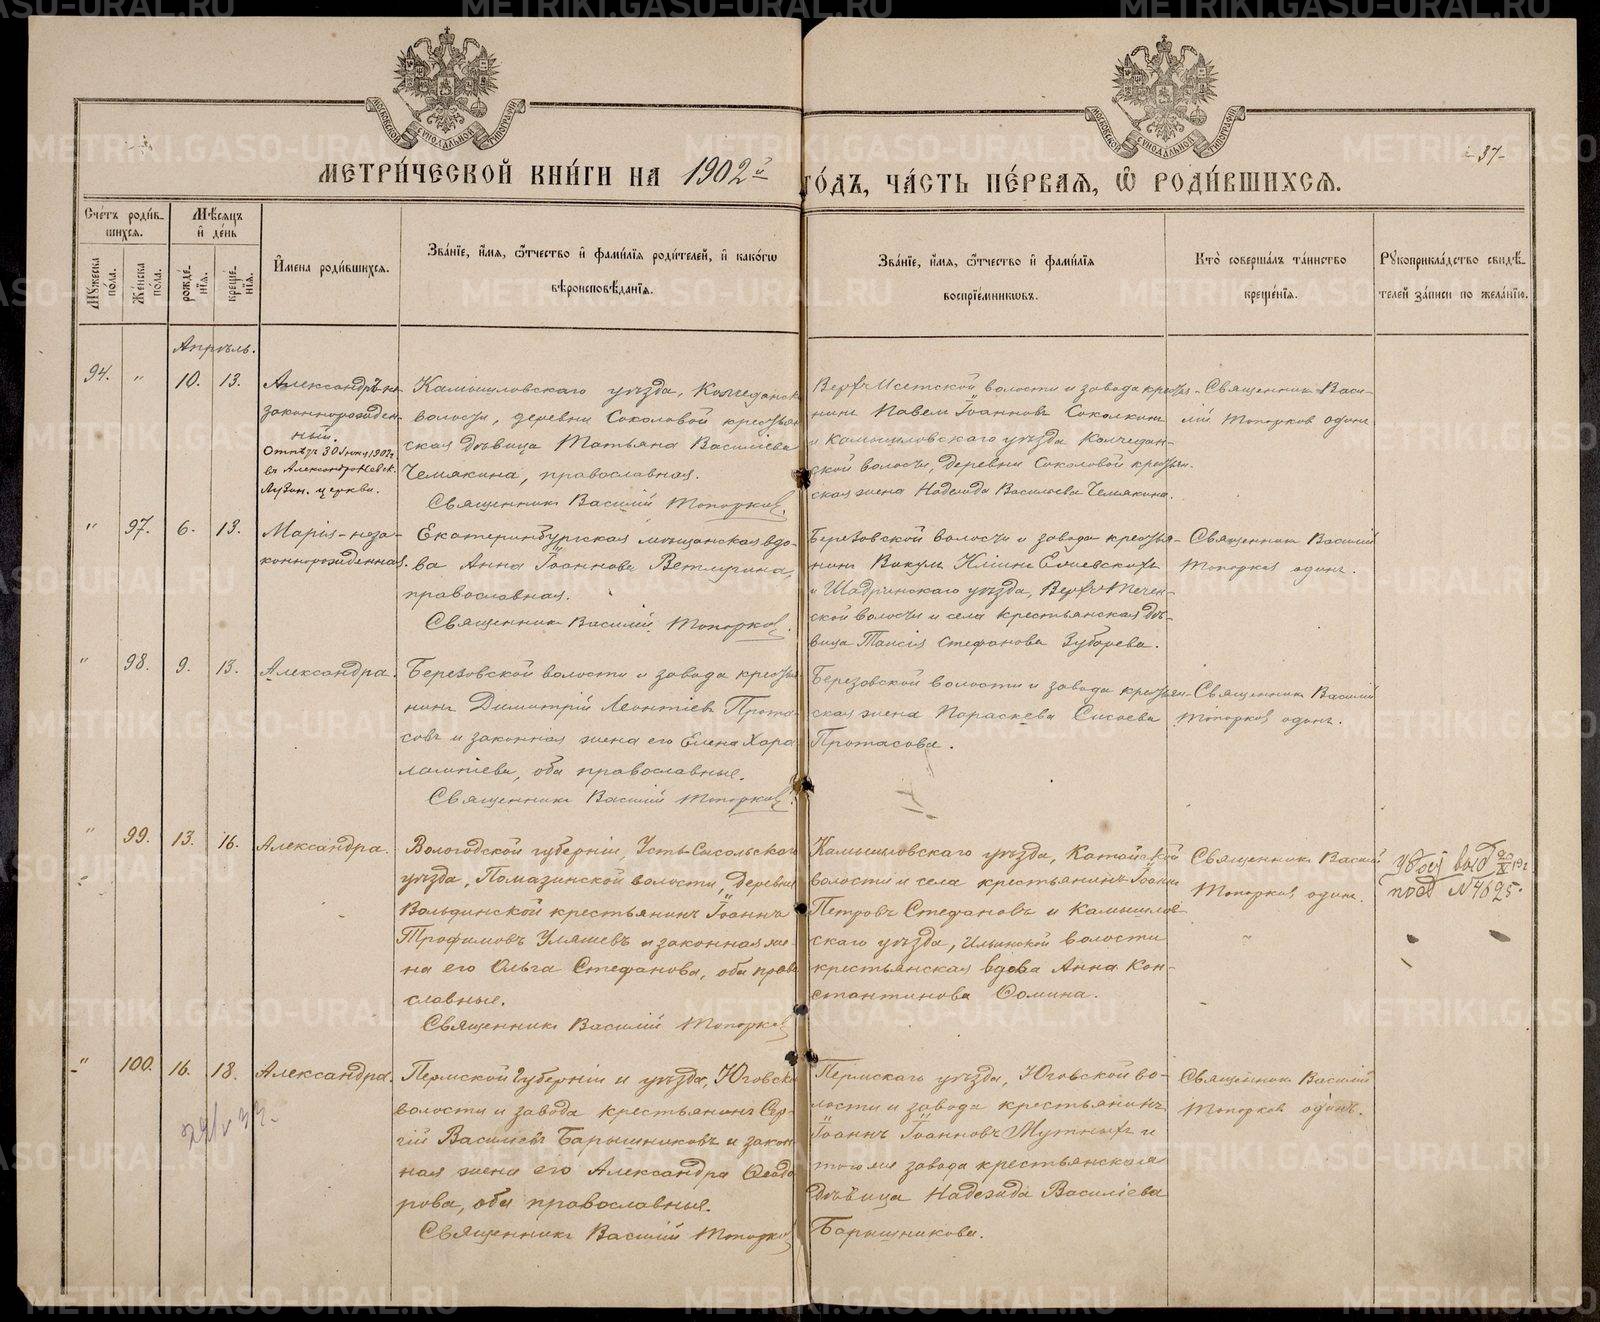 МЕТРИ́ЧЕСКОЙ КНИ́ГИ НА 1902й ГО́ДЪ, ЧА́СТЬ ПЕ́РВАЯ, Ѡ РОДИ́ВШИХСЯ.
37
Сче́тъ роди́в-
шихся.
Мѣсяцъ
и де́нь
Му́жеска по́ла.
Же́нска по́ла.
рожде́-
нїя.
креще́-
нїя.
И҆мена роди́вшихся.
Зва́нїе, и҆́мя, ѻ҆́тчество и҆ фами́лїя роди́телей, и҆ како́гѡ
вѣроисповѣ́данїя.
Зва́нїе, и҆́мя, ѻ҆́тчество и҆ фами́лїя
воспрїе́мникѡвъ.
Кто̀ соверша́лъ та́инство
креще́нїя.
Рꙋкоприкла́дство свидѣ́-
телей за́писи по жела́нїю.
Апрѣль.
94. " 10. 13.
Александръ не-
законнорожден-
ный.
Отпѣтъ 30 Іюня 1902 г.
въ Александро-Невск.
церкви.
Камышловскаго уѣзда, Колчеданск
волости, деревни Соколовой крестьян
ская дѣвица Татьяна Васильева
Чемякина, православная.
Священникъ Василій Топорковъ.
Верхъ-Исетской волости и завода крестья-
нинъ Павелъ Іоанновъ Соколкинъ
и Камышловскаго уѣзда Колчедан-
ской волости, деревни Соколовой крестьян-
ская жена Надежда Васильева Чемякина.
Священникъ Васи-
лій Топорковъ одинъ.
" 97. 6. 13.
Марія - неза-
коннорожденная.
Екатеринбургская мѣщанская вдо-
ва Анна Іоаннова Ветлугина,
православная.
Священникъ Василій Топорковъ.
Березовской волости и завода крестья-
нинъ Викулъ
и Шадринскаго уѣзда, Верхъ-Течен-
ской волости и села крестьянская дѣ-
вица Таисія Стефанова Зубарева.
Священникъ Василій
Топорковъ одинъ.
" 98. 9. 13.
Александра.
Березовской волости и завода крестья
нинъ Димитрій Леонтіевъ Прота-
совъ и законная жена его Елена Хара
лампіева, оба православные.
Священникъ Василій Топорковъ.
Березовской волости и завода крестьян-
ская жена Параскева Сысоева
Протасова.
Священникъ Василій
Топорковъ одинъ.
" 99. 13. 16.
Александра.
Вологодской губерніи, Усть-Сысольскаго
уѣзда, Помаздинской волости, деревни
Вольдинской крестьянинъ Іоаннъ
Трофимовъ Уляшевъ и законная же-
на его Ольга Стефанова, оба право
славные.
Священникъ Василій Топорковъ
Камышловскаго уѣзда, Катайской
волости и села крестьянинъ Іоаннъ
Петровъ Стефановъ и Камышлов-
скаго уѣзда, Ильинской волости
крестьянская вдова Анна Кон-
стантинова Ѳомина.
Священникъ Василій
Топорковъ одинъ.
под №4825.
" 100. 16. 18.
Александра.
Пермской губерніи и уѣзда, Юговско
волости и завода крестьянинъ Сер-
гій Василіевъ Барышниковъ и закон
ная жена его Александра Ѳеодо
рова, оба православные.
Священникъ Василій Топорков
Пермскаго уѣзда, Юговской во-
лости и завода крестьянинъ
Іоаннъ Іоанновъ Мутныхъ и
того же завода крестьянская
дѣвица Надежда Василіева
Барышникова.
Священникъ Василій
Топорковъ одинъ.
METRIKI.GASO-URAL.RU